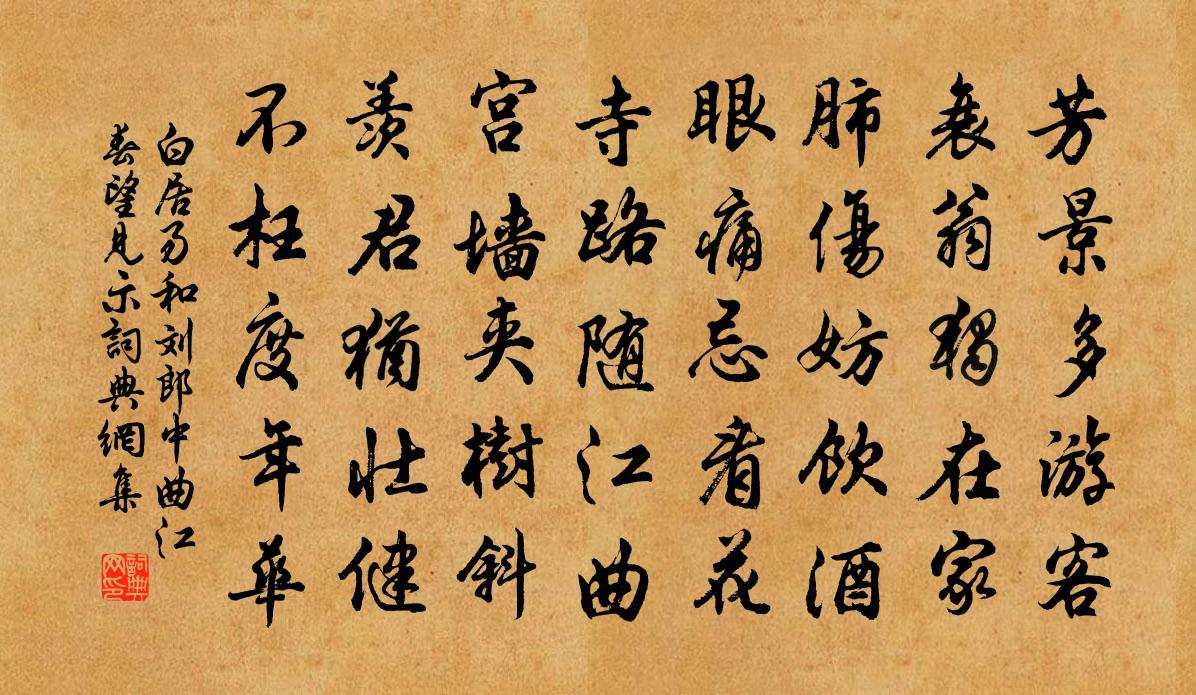 芳景多游客
衰翁獨在家
肺傷妨飲酒
眼痛忌看花
寺路随江曲
宫墙夾樹斜
羨君猶壯健
不枉度年華
白居易和刘郎中曲江
春望見示詞典網集
詞典网印